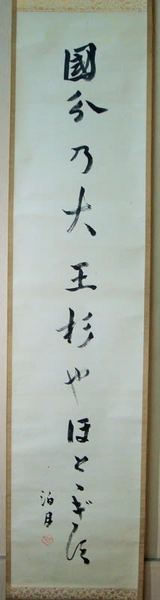 國分乃大王杉やほとゝぎす
泊月